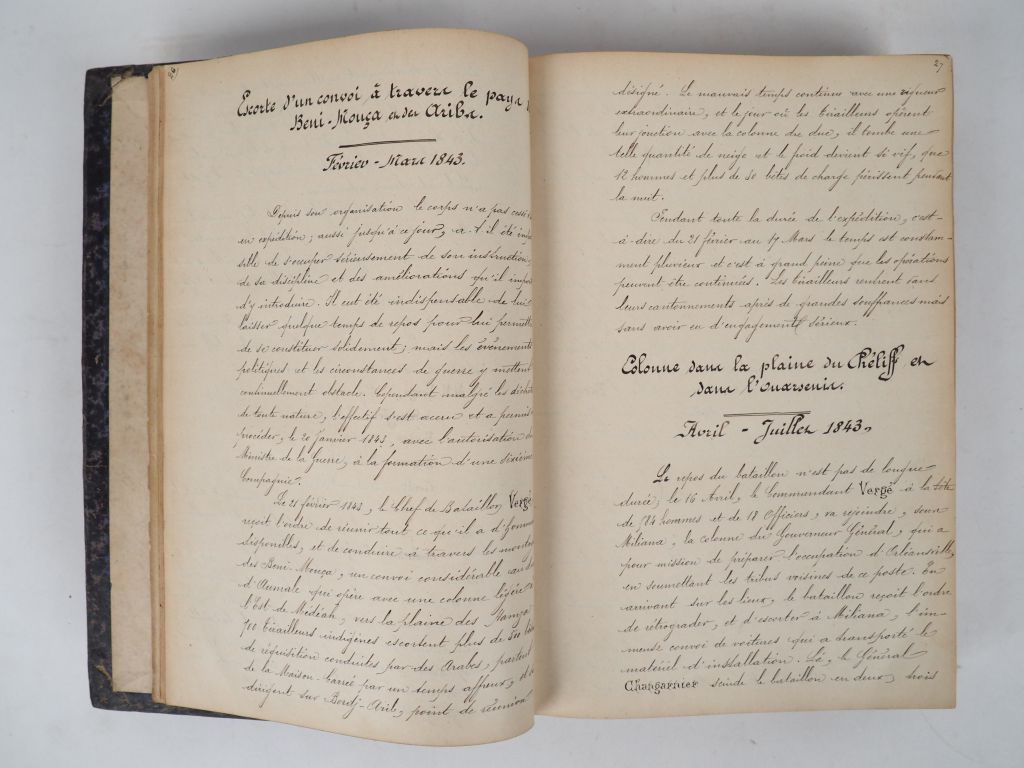 26
Escorte d'un convoi à travers le pays
Beni-Mouça et des Aribs.
Février - Mars 1843.
Depuis son organisation le corps n'a pas cessé
en expédition; aussi jusqu'à ce jour, a-t-il été
de s'occuper sérieusement de son instruction
de sa discipline et des améliorations qu'il
d'y introduire. Il eut été indispensable de lui
laisser quelque temps de repos pour lui permettre
de se constituer solidement; mais les événements
politiques et les circonstances de guerre y mettent
continuellement obstacle. Cependant malgré les
de toute nature, l'effectif s'est accru et a permis
procéder, le 20 Janvier 1843, avec l'autorisation
Ministre de la Guerre, à la formation d'une sixième
Compagnie.
Le 21 février 1843, le Chef de Bataillon Vergé
reçoit l'ordre de réunir tout ce qu'il a d'hommes
disponibles, et de conduire à travers les
des Beni-Mouça, un convoi considérable au
d'Aumale qui opère avec une colonne légère
l'Est de Médéah, vers la plaine des
700 tirailleurs indigènes escortent plus de 500
de réquisition conduites par des Arabes, partent
de la Maison-Carrée par un temps affreux, et
dirigent sur Bordj-Arib, point de réunion
27
désigné. Le mauvais temps continue avec une rigueur
extraordinaire, et le jour où les tirailleurs opèrent
leur jonction avec la colonne du duc, il tombe une
telle quantité de neige et le froid devient si vif, que
12 hommes et plus de 50 bêtes de charge périssent pendant
la nuit.
Pendant toute la durée de l'expédition, c'est-
à-dire du 21 février au 17 Mars le temps est constam-
ment pluvieux et c'est à grand peine que les opérations
peuvent être continuées. Les tirailleurs rentrent dans
leurs cantonnements après de grandes souffrances mais
sans avoir eu d'engagement sérieux.
Colonne dans la plaine du Chéliff et
dans l'Ouarsenis.
Avril - Juillet 1843.
Le repos du bataillon n'est pas de longue
durée; le 16 Avril, le Commandant Vergé à la tête
de 784 hommes et de 18 Officiers, va rejoindre, sous
Miliana, la colonne du Gouverneur Général, qui a
pour mission de préparer l'occupation d'Orléansville,
en soumettant les tribus voisines de ce poste. En
arrivant sur les lieux, le bataillon reçoit l'ordre
de rétrograder, et d'escorter à Miliana, l'im-
mense convoi de voitures qui a transporté le
matériel d'installation. Là, le Général
Changarnier scinde le bataillon en deux, trois